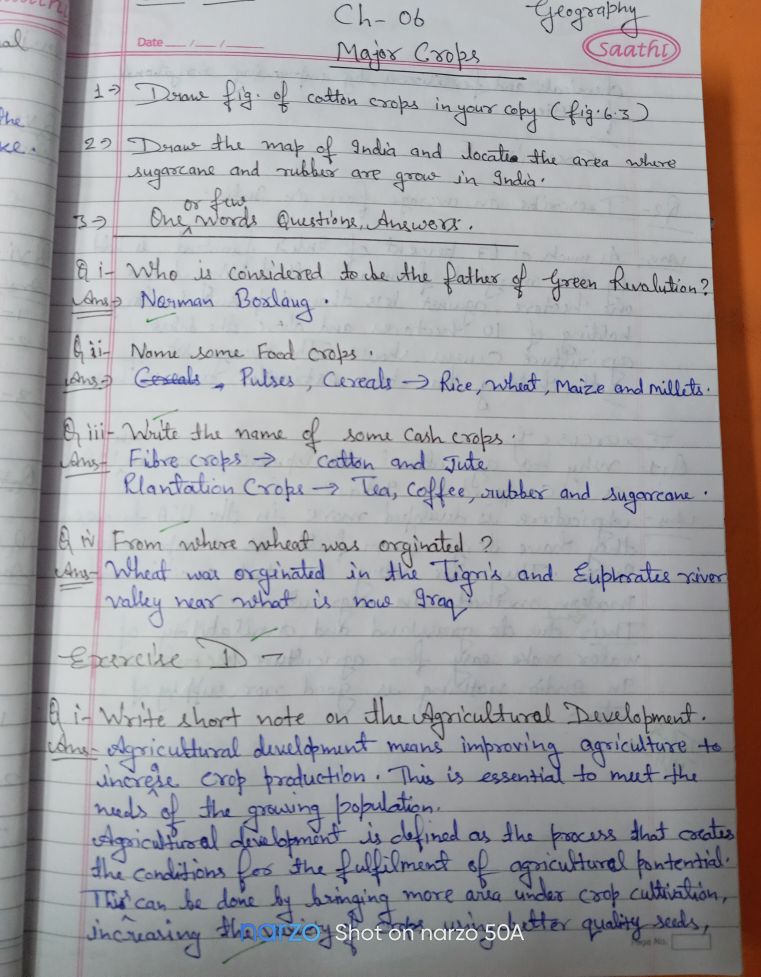 Ch-06 Geography
Date
Saathi
Major Crops
1→ Draw fig. of cotton crops in your copy (fig. 6.3)
2→ Draw the map of India and locate the area where
sugarcane and rubber are grow in India.
or few
3→ One ^ Words Questions, Answers.
Q i- Who is considered to be the father of Green Revalution?
Ans→ Narman Boxlaug.
Q ii- Name some Food crops.
Ans→ Cereals, Pulses, Cereals → Rice, wheat, Maize and millets.
Q iii- Write the name of some Cash crops.
Ans- Fibre crops → Cotton and Jute
Plantation Crops → Tea, Coffee, rubber and sugarcane.
Q iv From where wheat was orginated?
Ans- Wheat was orginated in the Tigris and Euphorates river
valley near what is now Iraq.
Exercise D -
Q i- Write short note on the Agricultural Development.
Ans- Agricultural development means improving agriculture to
increase crop production. This is essential to meet the
needs of the growing population.
Agricultural development is defined as the process that creates
the conditions for the fulfilment of agricultural pontential.
This can be done by bringing more area under crop cultivation,
increasing the using better quality seeds,
narzo Shot on narzo 50A
Page No.
al
the
ke.